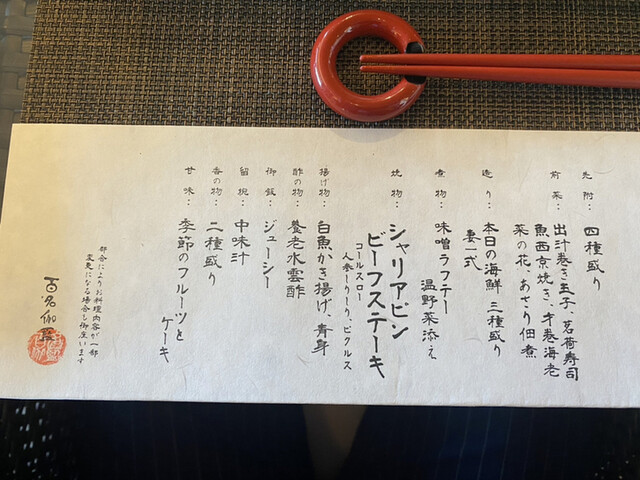 先附：四種盛り
前菜：出汁巻き玉子、茗荷寿司
魚西京焼き、才巻海老
菜の花、あさり佃煮
造り：本日の海鮮 三種盛り
妻一式
煮物：味噌ラフテー
温野菜添え
焼物：シャリアピン
ビーフステーキ
コールスロー
人参しりしり、ピクルス
揚げ物：白魚かき揚げ、青身
酢の物：養老水雲酢
御飯：ジューシー
留椀：中味汁
香の物：二種盛り
甘味：季節のフルーツと
ケーキ
都合によりお料理内容が一部
変更になる場合も御座います
百名伽藍